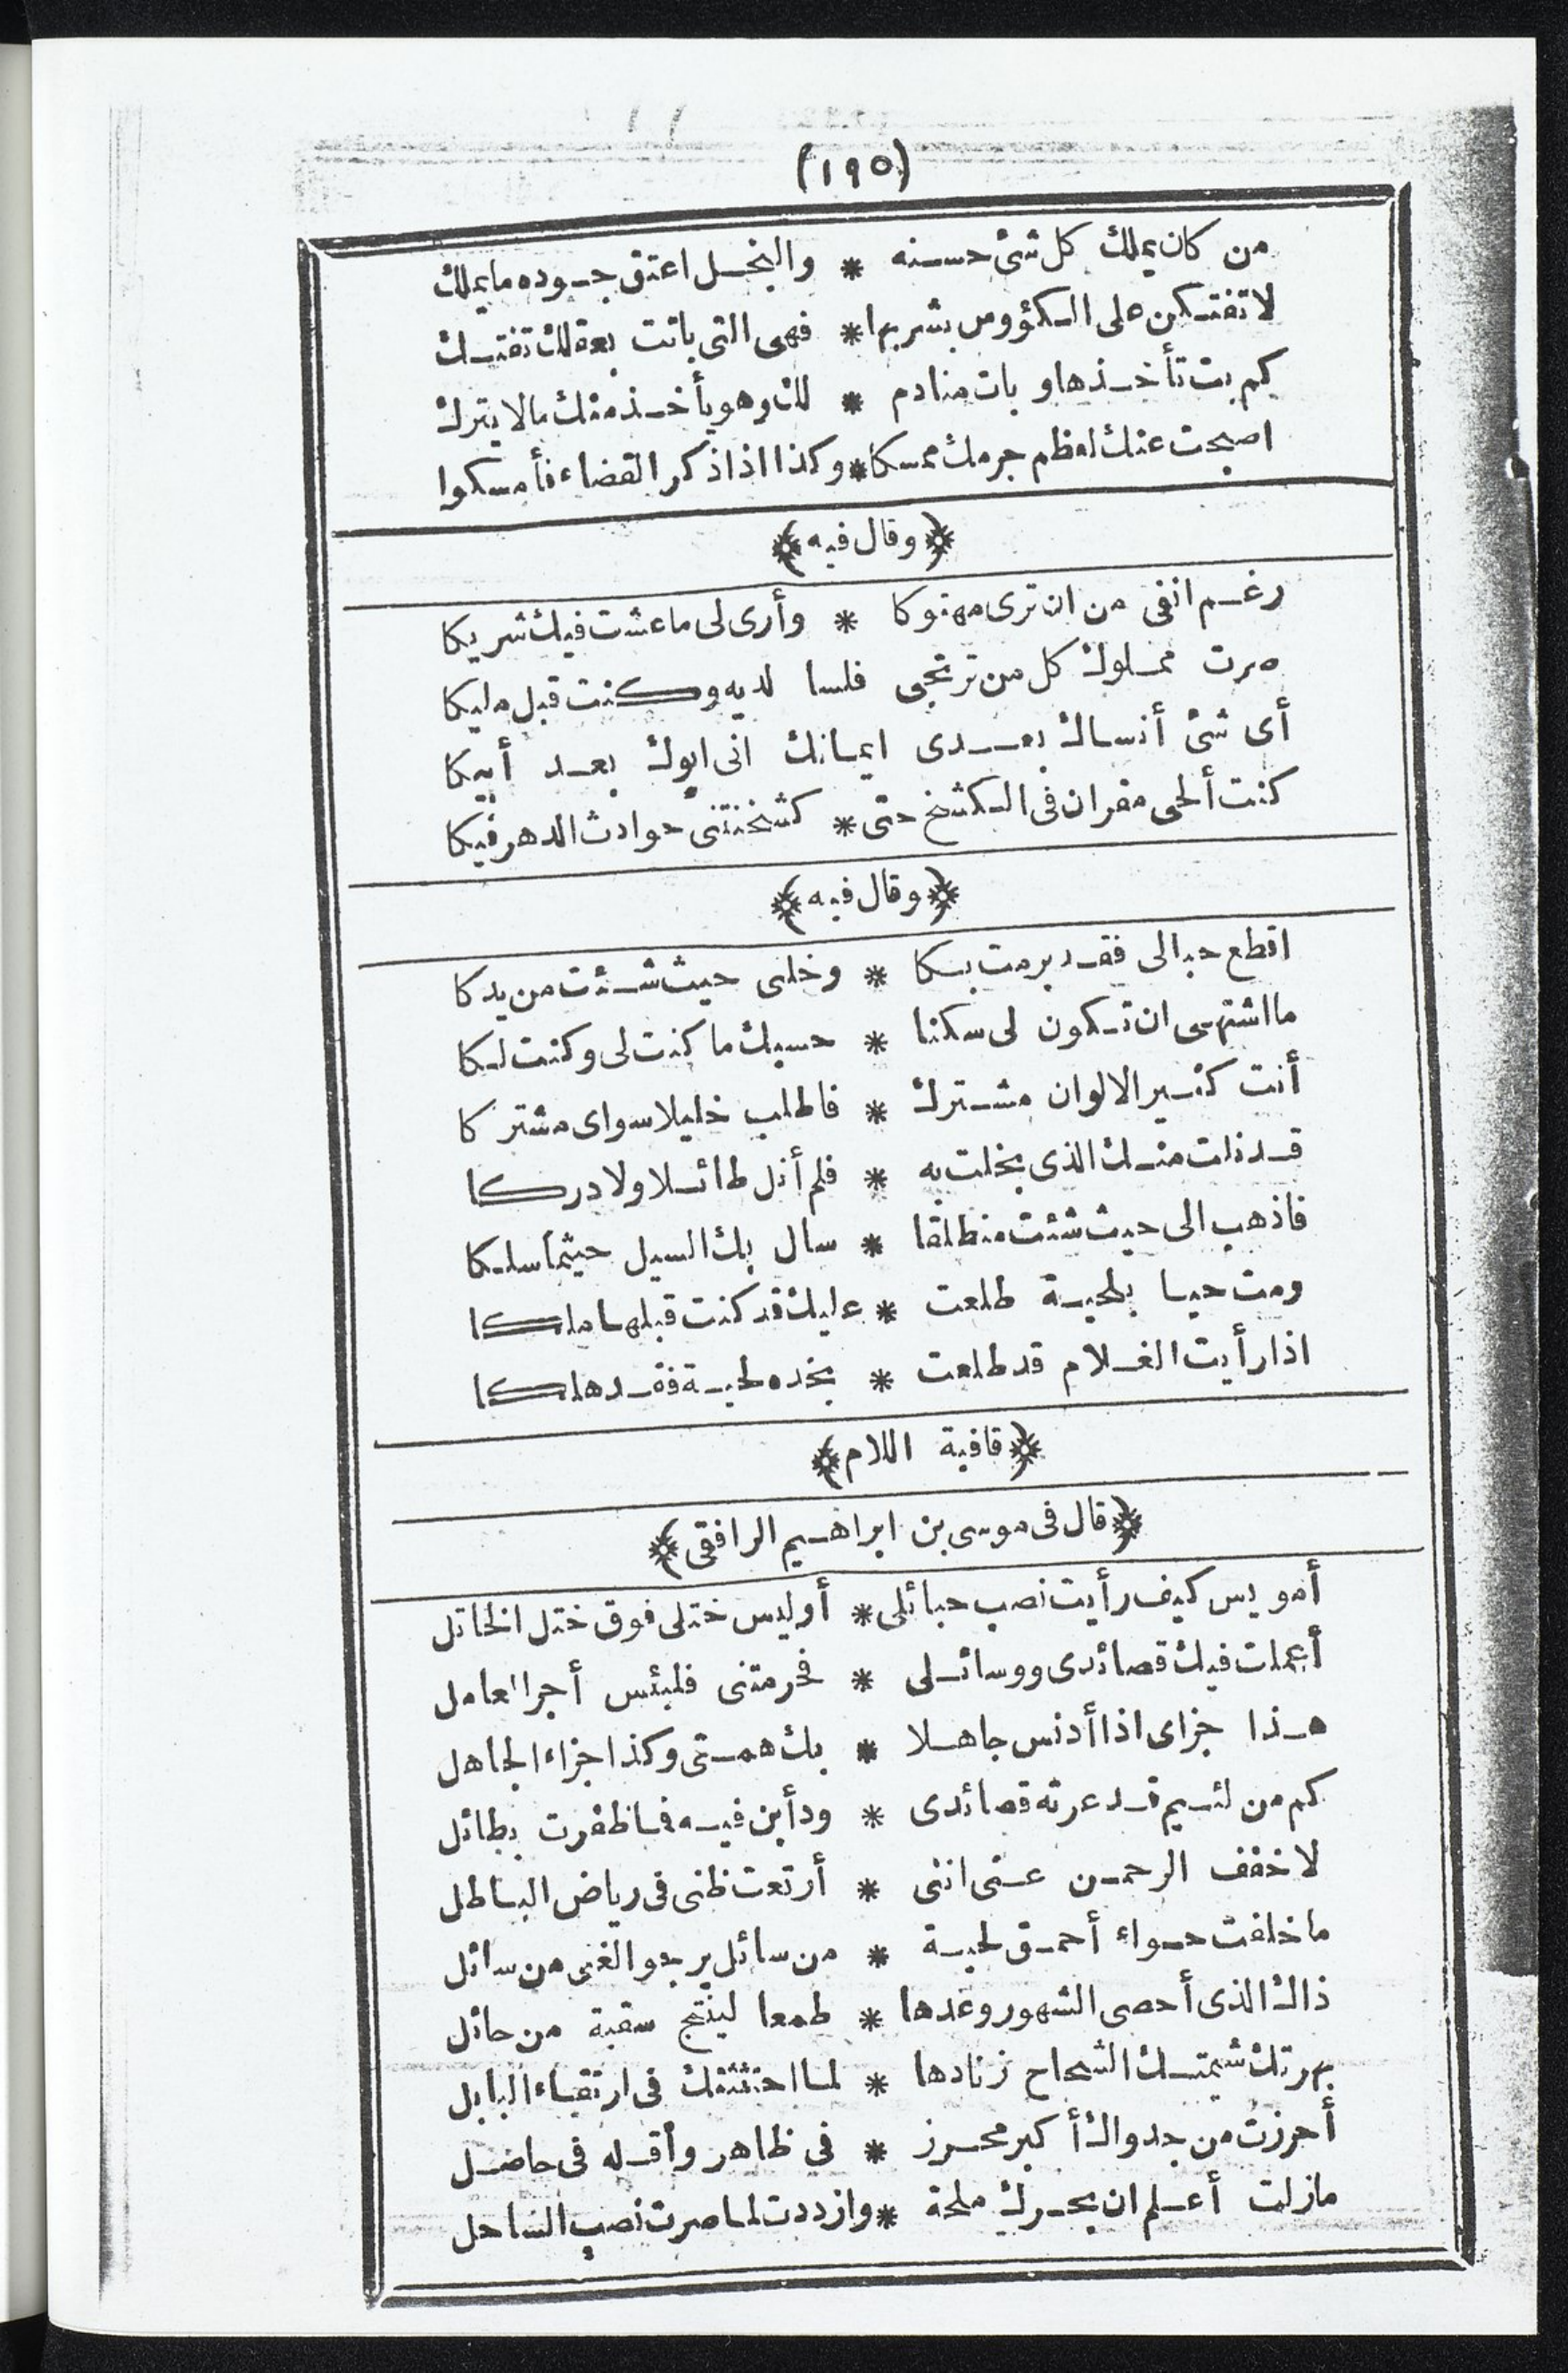 (١٩٥)
من كان يملك كل شئ حسنه * والبخل اعتق جوده ما يملك
لا تفتكن على الكؤوس بشربها * فهى التى باتت بعقلك تفتك
كم بت تأخذها وبات منادم * لك وهو يأخذ منك مالا يترك
اصبحت عنك لعظم جرمك ممسكا * وكذا اذا ذكر القضاء فأمسكوا
﴿وقال فيه﴾
رغم انفى من ان ترى مهتوكا * وأرى لى ما عشت فيك شريكا
صرت مملوك كل من ترتجى فلسا لديه وكنت قبل مليكا
أى شئ أنساك بعدى ايمانك انى ابوك بعد أبيكا
كنت ألحى مقران فى الكشخ حتى * كشخنتنى حوادث الدهر فيكا
﴿وقال فيه﴾
اقطع حبالى فقد برمت بكا * وخلنى حيث شئت من يدكا
ما اشتهى ان تكون لى سكنا * حسبك ما كنت لى وكنت لكا
أنت كثير الالوان مشترك * فاطلب خليلا سواى مشتركا
قد نلت منك الذى بخلت به * فلم أنل طائلا ولا دركا
فاذهب الى حيث شئت منطلقا * سال بك السيل حيثما سلكا
ومت حيا بلحية طلعت * عليك قد كنت قبلها ملكا
اذا رأيت الغلام قد طلعت * بخده لحية فقد هلكا
﴿قافية اللام﴾
﴿قال فى موسى بن ابراهيم الرافقى﴾
أمويس كيف رأيت نصب حبائلى * أوليس ختلى فوق ختل الخاتل
أعملت فيك قصائدى ووسائلى * فحرمتنى فلبئس أجر العامل
هذا جزاى اذا أدنس جاهلا * بك همتى وكذا جزاء الجاهل
كم من لئيم قد عرته قصائدى * ودأبن فيه فما ظفرت بطائل
لا خفف الرحمن عنى اننى * أرتعت ظنى فى رياض الباطل
ما خلفت حواء أحمق لحية * من سائل يرجو الغنى من سائل
ذاك الذى أحصى الشهور وعدها * طمعا لينتج سقبة من حائل
بهرتك شيمتك الشحاح زنادها * لما احتثثتك فى ارتقاء البابل
أحرزت من جدواك أكبر محرز * في ظاهر وأقله فى حاصل
مازلت أعلم ان بحرك ملحة * وازددت لما صرت نصب الساحل